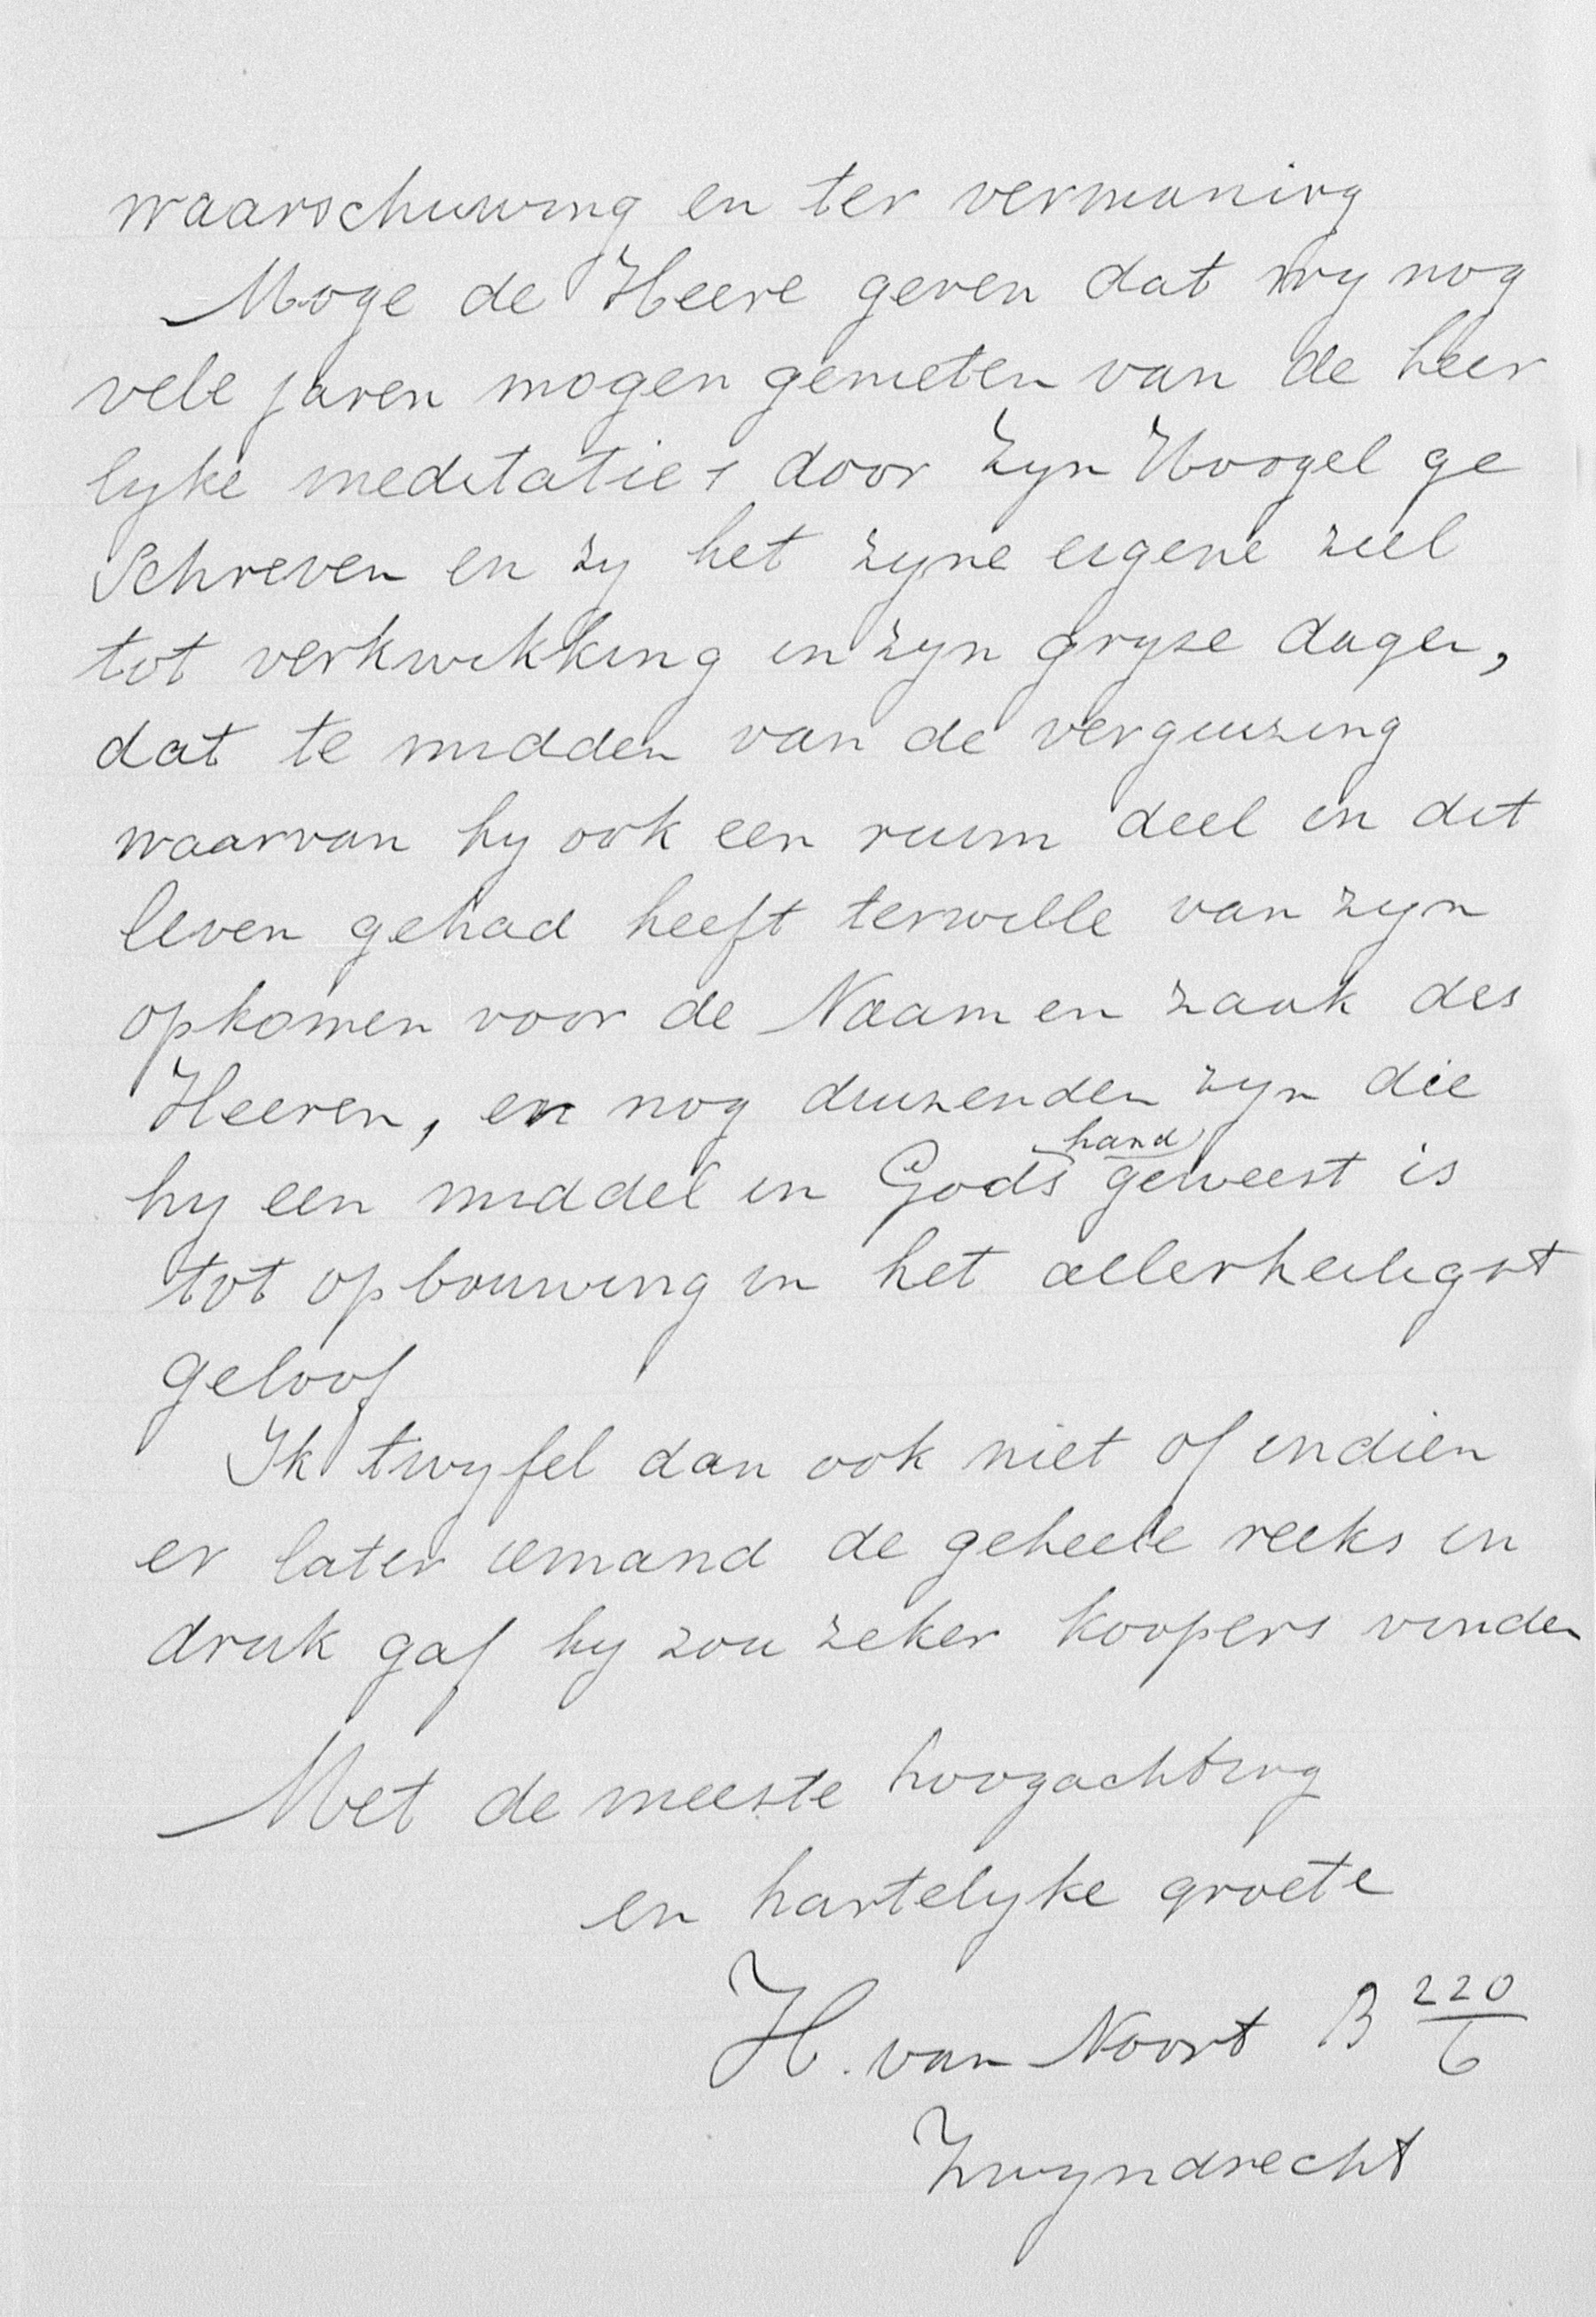 waarschuwing en ter vermaning
Moge de Heere geven dat wy nog
vele jaren mogen genieten van de heer
lyke meditatie's door Zyn Hoogel ge
Schreven en zy het zyne eigene ziel
tot verkwikking in zyn gryze dagen,
dat te midden van de verguizing
waarvan hy ook een ruim deel in dit
leven gehad heeft terwille van zyn
opkomen voor de Naam en zaak des
Heeren, er nog duizenden zyn die
hy een middel in Gods hand geweest is
tot opbouwing in het allerheiligst
geloof
Ik twyfel dan ook niet of indien
er later iemand de geheele reeks in
druk gaf hy zou zeker koopers vinden
Met de meeste hoogachting
en hartelyke groete
H. van Noort B 220/6
Zwyndrecht